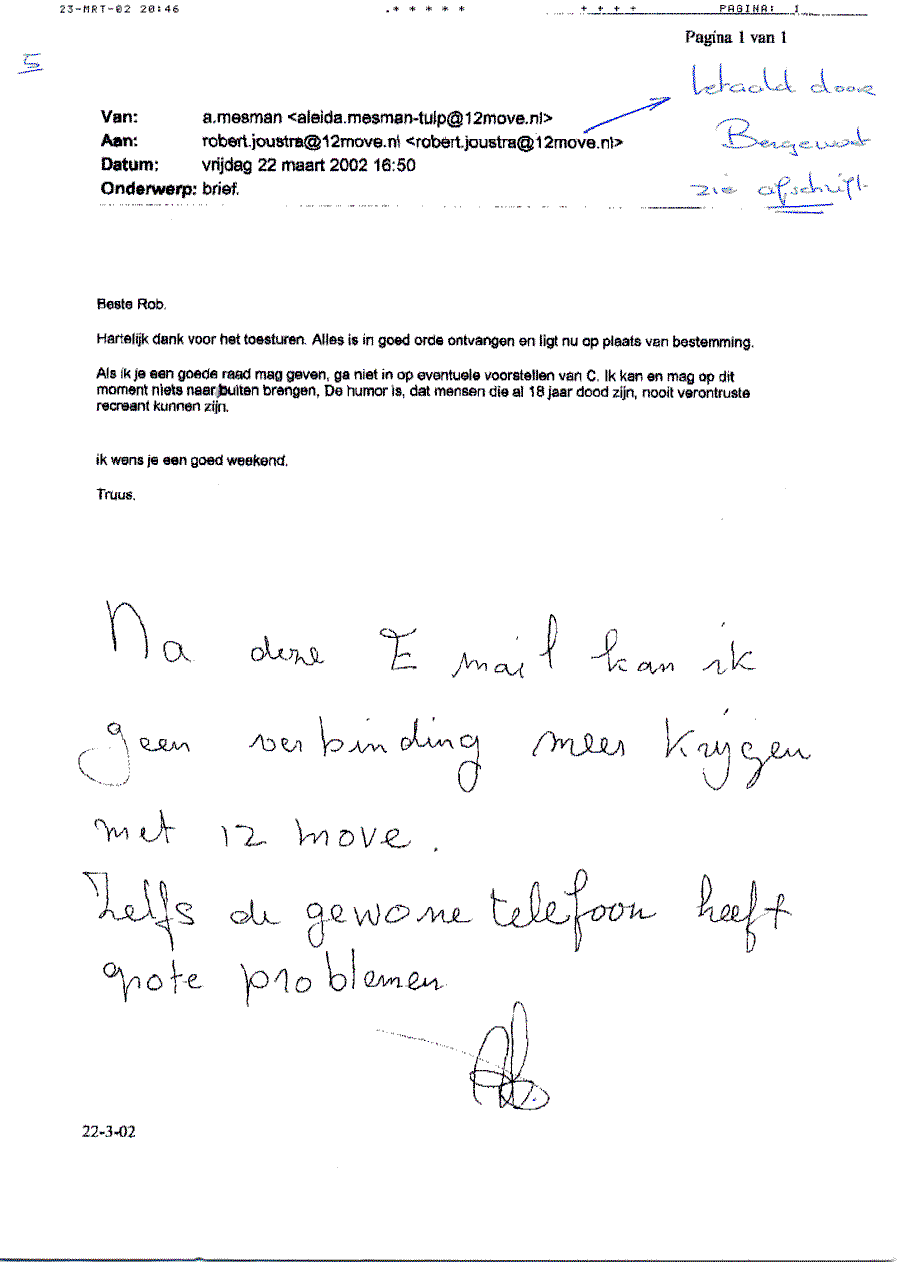 23-MRT-02 20:46 .* * * * * + + + + PAGINA: 1
Pagina 1 van 1
5
betaald door
Bergevoet
zie afschrift
Van: a.mesman <aleida.mesman-tulp@12move.nl>
Aan: robert.joustra@12move.nl <robert.joustra@12move.nl>
Datum: vrijdag 22 maart 2002 16:50
Onderwerp: brief.
Beste Rob.
Hartelijk dank voor het toesturen. Alles is in goed orde ontvangen en ligt nu op plaats van bestemming.
Als ik je een goede raad mag geven, ga niet in op eventuele voorstellen van C. Ik kan en mag op dit
moment niets naar buiten brengen, De humor is, dat mensen die al 18 jaar dood zijn, nooit verontruste
recreant kunnen zijn.
ik wens je een goed weekend.
Truus.
Na deze E mail kan ik
geen verbinding meer krijgen
met 12 move.
Zelfs de gewone telefoon heeft
grote problemen
22-3-02